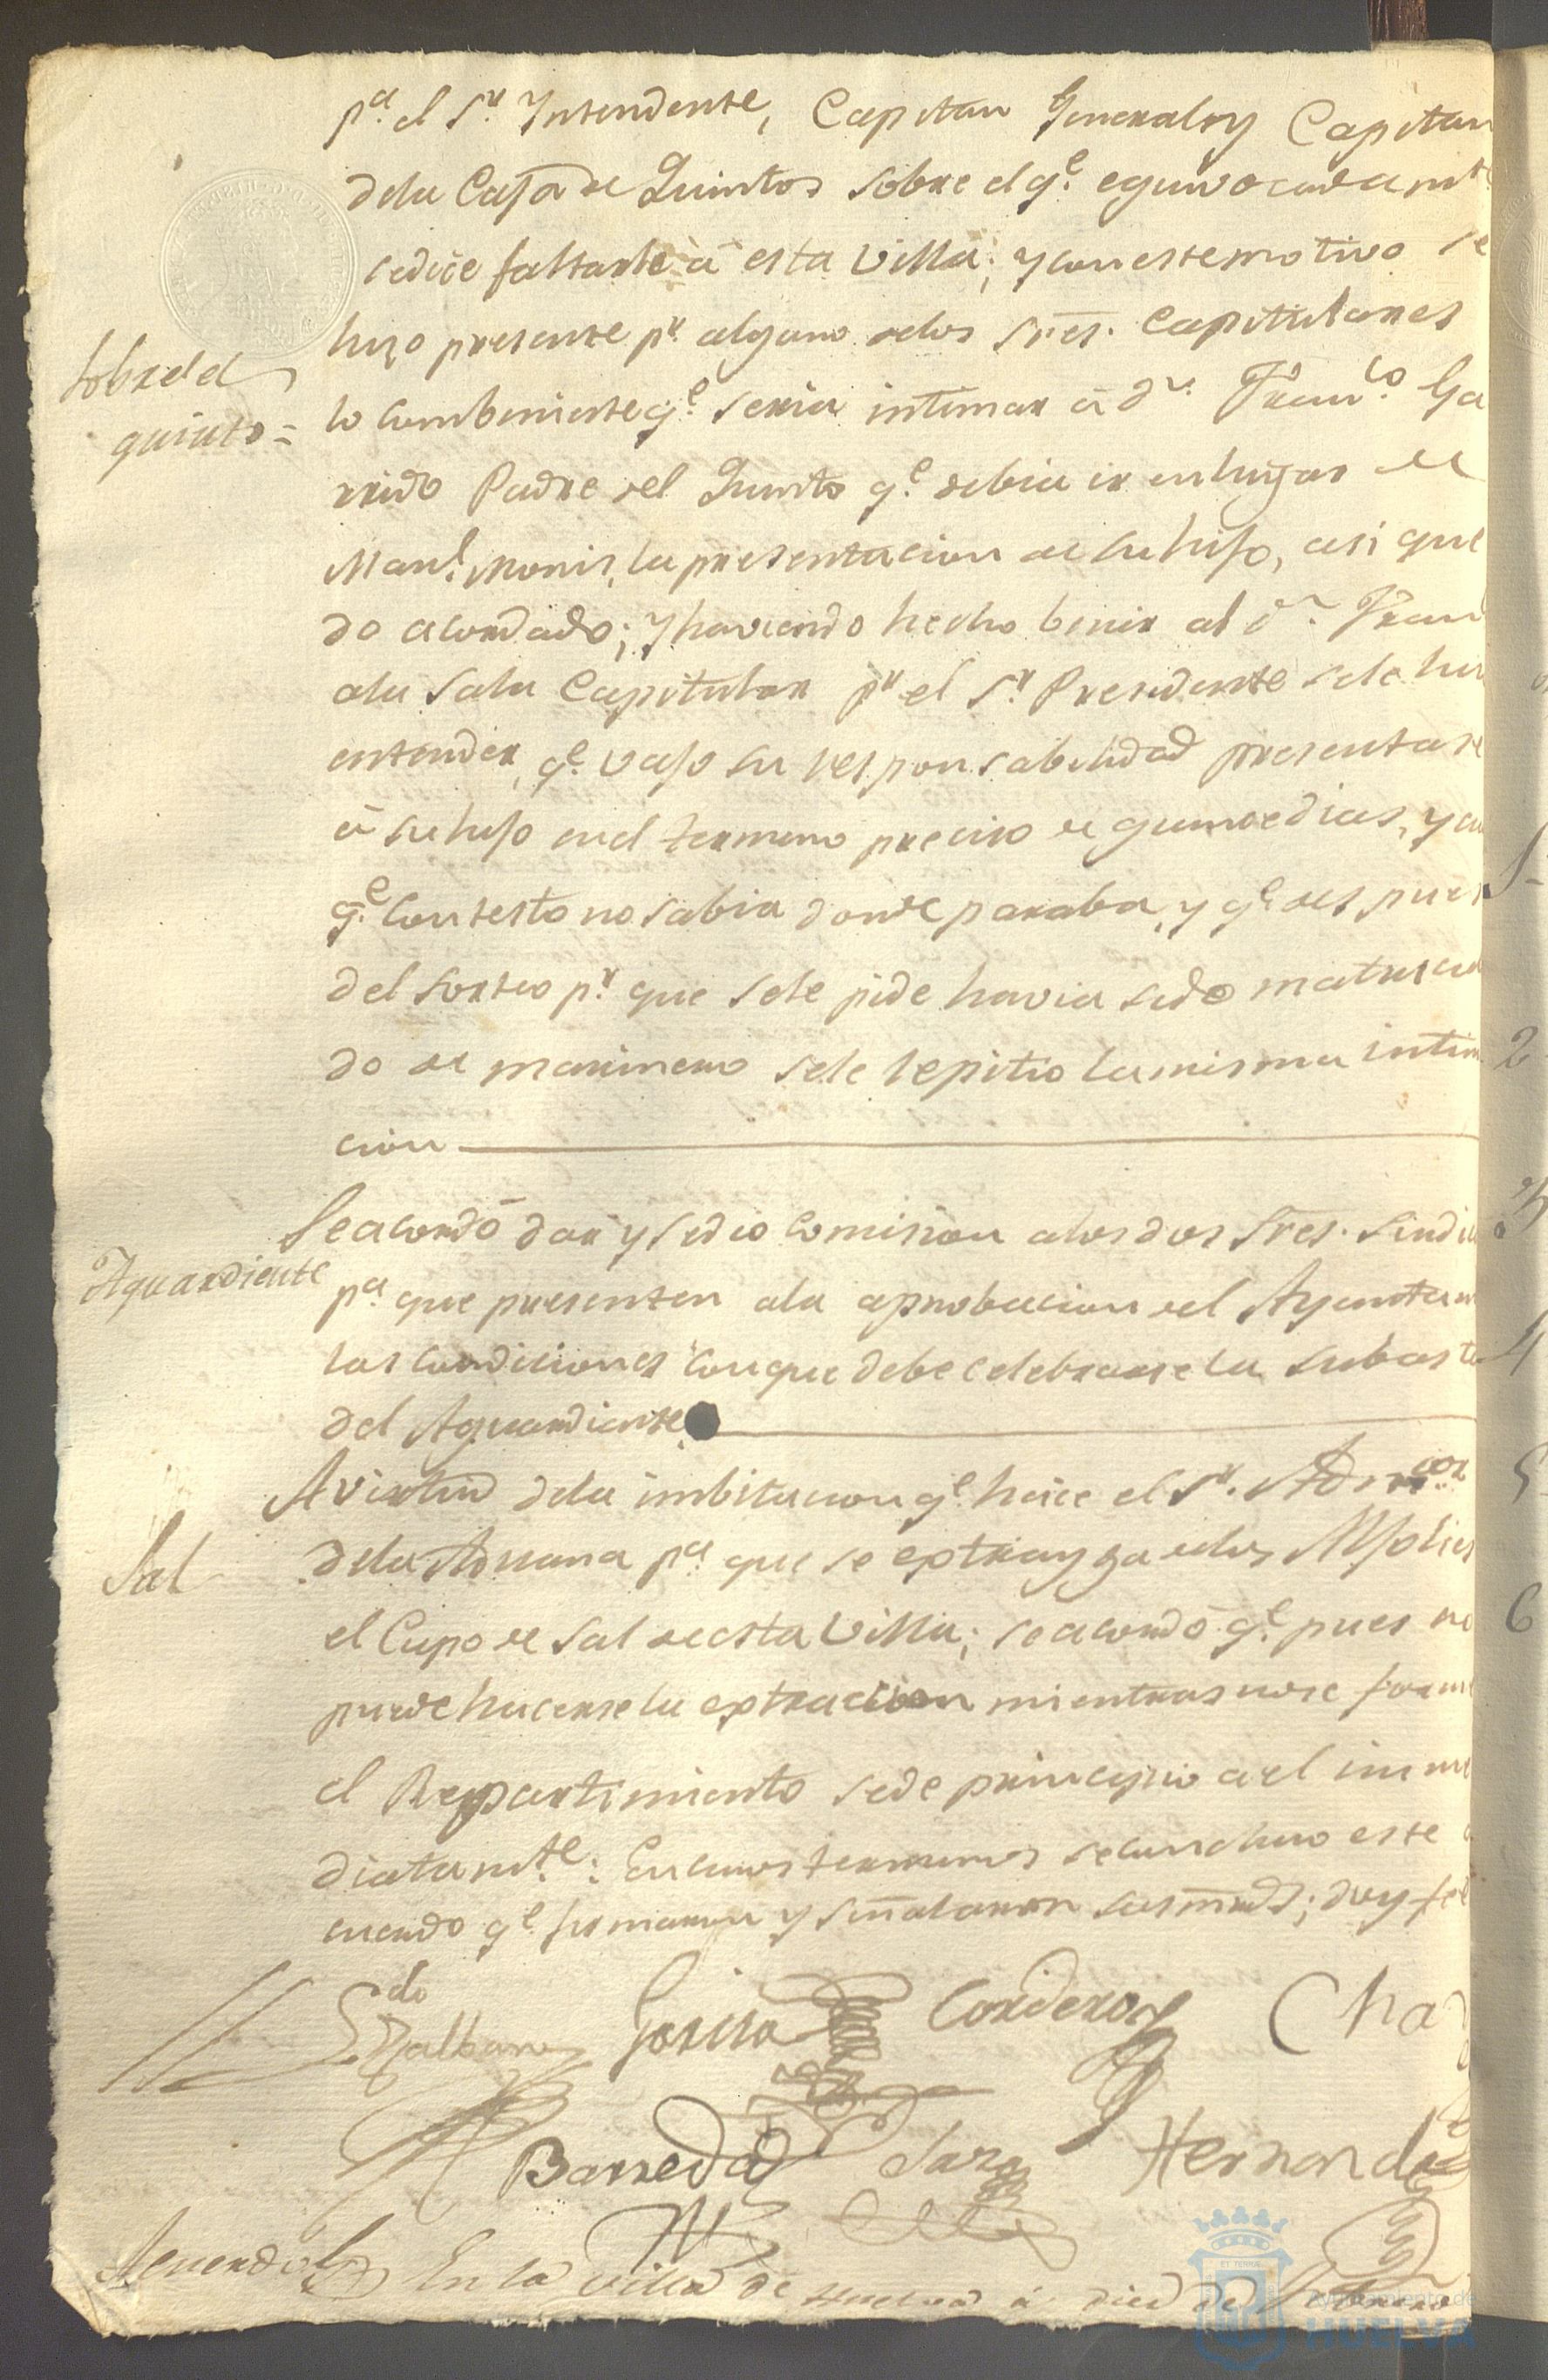 pª. el Sr. Yntendente, Capitan General y Capitan
dela Caja de Quintos sobre el qe. equivocadamte.
sedice faltarle à esta Villa; y con este motivo se
hizo presente pr. alguno delos Sres. Capitulares
Sobre el
quinto =
lo combeniente qe. seria intimar à Dn. Franco. Ga
rrido Padre del Quinto qe. debia ir en lugar de
Manl. Monis, la presentacion de su hijo, asi que
do acordado; y haviendo hecho benir al Dn. Fran
ala Sala Capitular pr. el Sr. Presidente sele hi
entender, qe. vajo su responsabilidad presentase
à su hijo en el termino preciso de quince dias, y au
qe. contesto no sabia donde paraba, y qe. despues
del sorteo pr. que sele pide havia sido matricu
do de marinero sele repitio la misma intim
cion
Se acordó dar y sedio comision alos dos Sres. Sindi
Aguardiente
pª. que presenten ala aprobacion del Ayuntam
las condiciones con que debe celebrarse la subasta
del Aguardiente
A virtud dela imbitacion qe. hace el Sr. Admor.
Sal
dela Aduana pª. que se extrayga delos Alfolies
el Cupo de Sal de esta Villa; se acordó qe. pues no
puede hacerse la extraccion mientras no se forme
el Repartimiento sede principio a el inme
diatamte.: En cuios terminos se concluio este a
cuerdo qe. firmaron y señalaron sus mrds; doy fe
Ldo
Balban Garcia Cordero Cha
Barreda Jara Hernand
Acuerdo En la villa de Huelva á diez de
ET TERRA
Ayuntamiento de
HUELVA
1
2
3
4
5
6